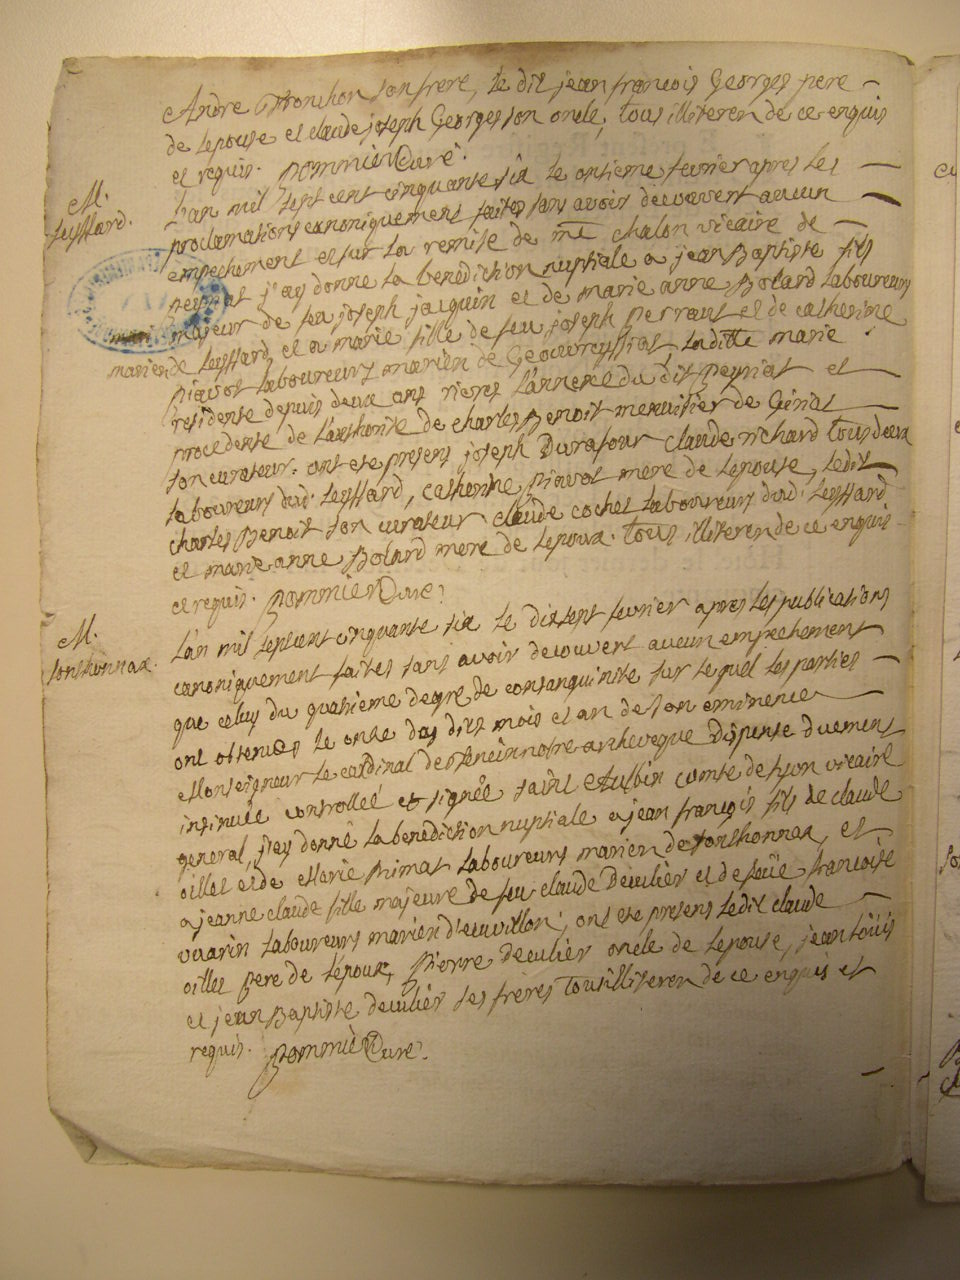 Andre Tronchon son frere, le dit jean francois Georges pere
de lepouse et claude joseph Georges son oncle, tous illiteren de ce enquis
et requis. pommier Curé.
M.
Leyssard.
L'an mil sept cent cinquante six le onzieme fevrier apres les
proclamations canoniquement faites sans avoir decouvert aucun
empechement et sur la remise de mre chalon vicaire de
peyriat j'ay donné la benediction nuptiale a jean Baptiste fils
majeur de feu joseph jacquin et de marie anne Bolard laboureurs
marien de Leyssard et a marie fille de feu joseph perraut et de catherine
piavot laboureurs marien de Geovreyssiat, laditte marie
residente depuis deux ans rieres l'annexe du dit peyriat et
procedente de l'authorité de charles Benoit menuisier de
son curateur. ont eté presens joseph Durafour claude richard tous deux
laboureurs dud. Leyssard, catherine piavot mere de lepouse, ledit
charles Benoit son curateur claude cochet laboureurs dud. Leyssard
et marie anne Bolard mere de lepoux. tous illiteren de ce enquis
et requis. pommier Curé.
M.
sonthonnax.
L'an mil sept cent cinquante six le dix sept fevrier apres les publications
canoniquement faites sans avoir decouvert aucun empechement
que celuy du quatrieme degré de consanguinité sur le quel les parties
ont obtenues le onze des dits mois et an de son eminence
Monseigneur le cardinal de Tencin notre archeveque dispense duement
insinuée controllée et signée saint Aulbin comte de lyon vicaire
general, j'ay donné la benediction nuptiale a jean françois fils de claude
oillet et de Marie primat laboureurs marien de sonthonnax, et
a jeanne claude fille majeure de feu claude Decullier et de françoise
vuarin laboureurs marien d'euvillon; ont eté presens ledit claude
oillet pere de lepoux, pierre decullier oncle de lepouse, jean loüis
et jean Baptiste decullier ses freres tous illiteren de ce enquis et
requis. pommier Curé.